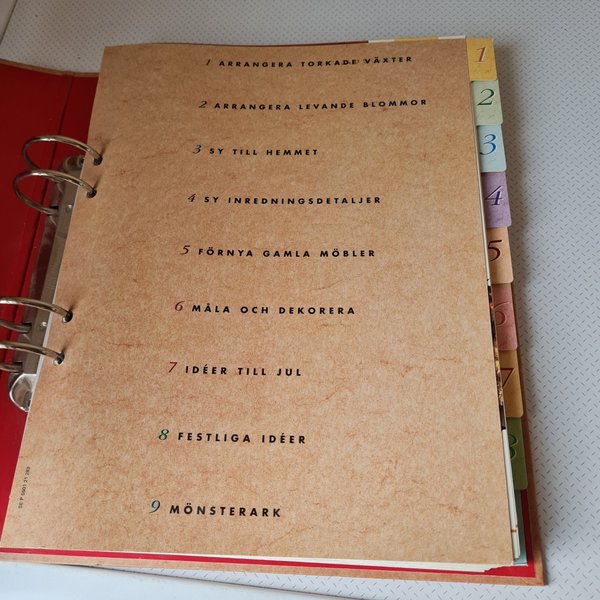 1 ARRANGERA TORKADE VÄXTER
2 ARRANGERA LEVANDE BLOMMOR
3 SY TILL HEMMET
4 SY INREDNINGSDETALJER
5 FÖRNYA GAMLA MÖBLER
6 MÅLA OCH DEKORERA
7 IDÉER TILL JUL
8 FESTLIGA IDÉER
9 MÖNSTERARK
1
2
3
4
5
6
7
8